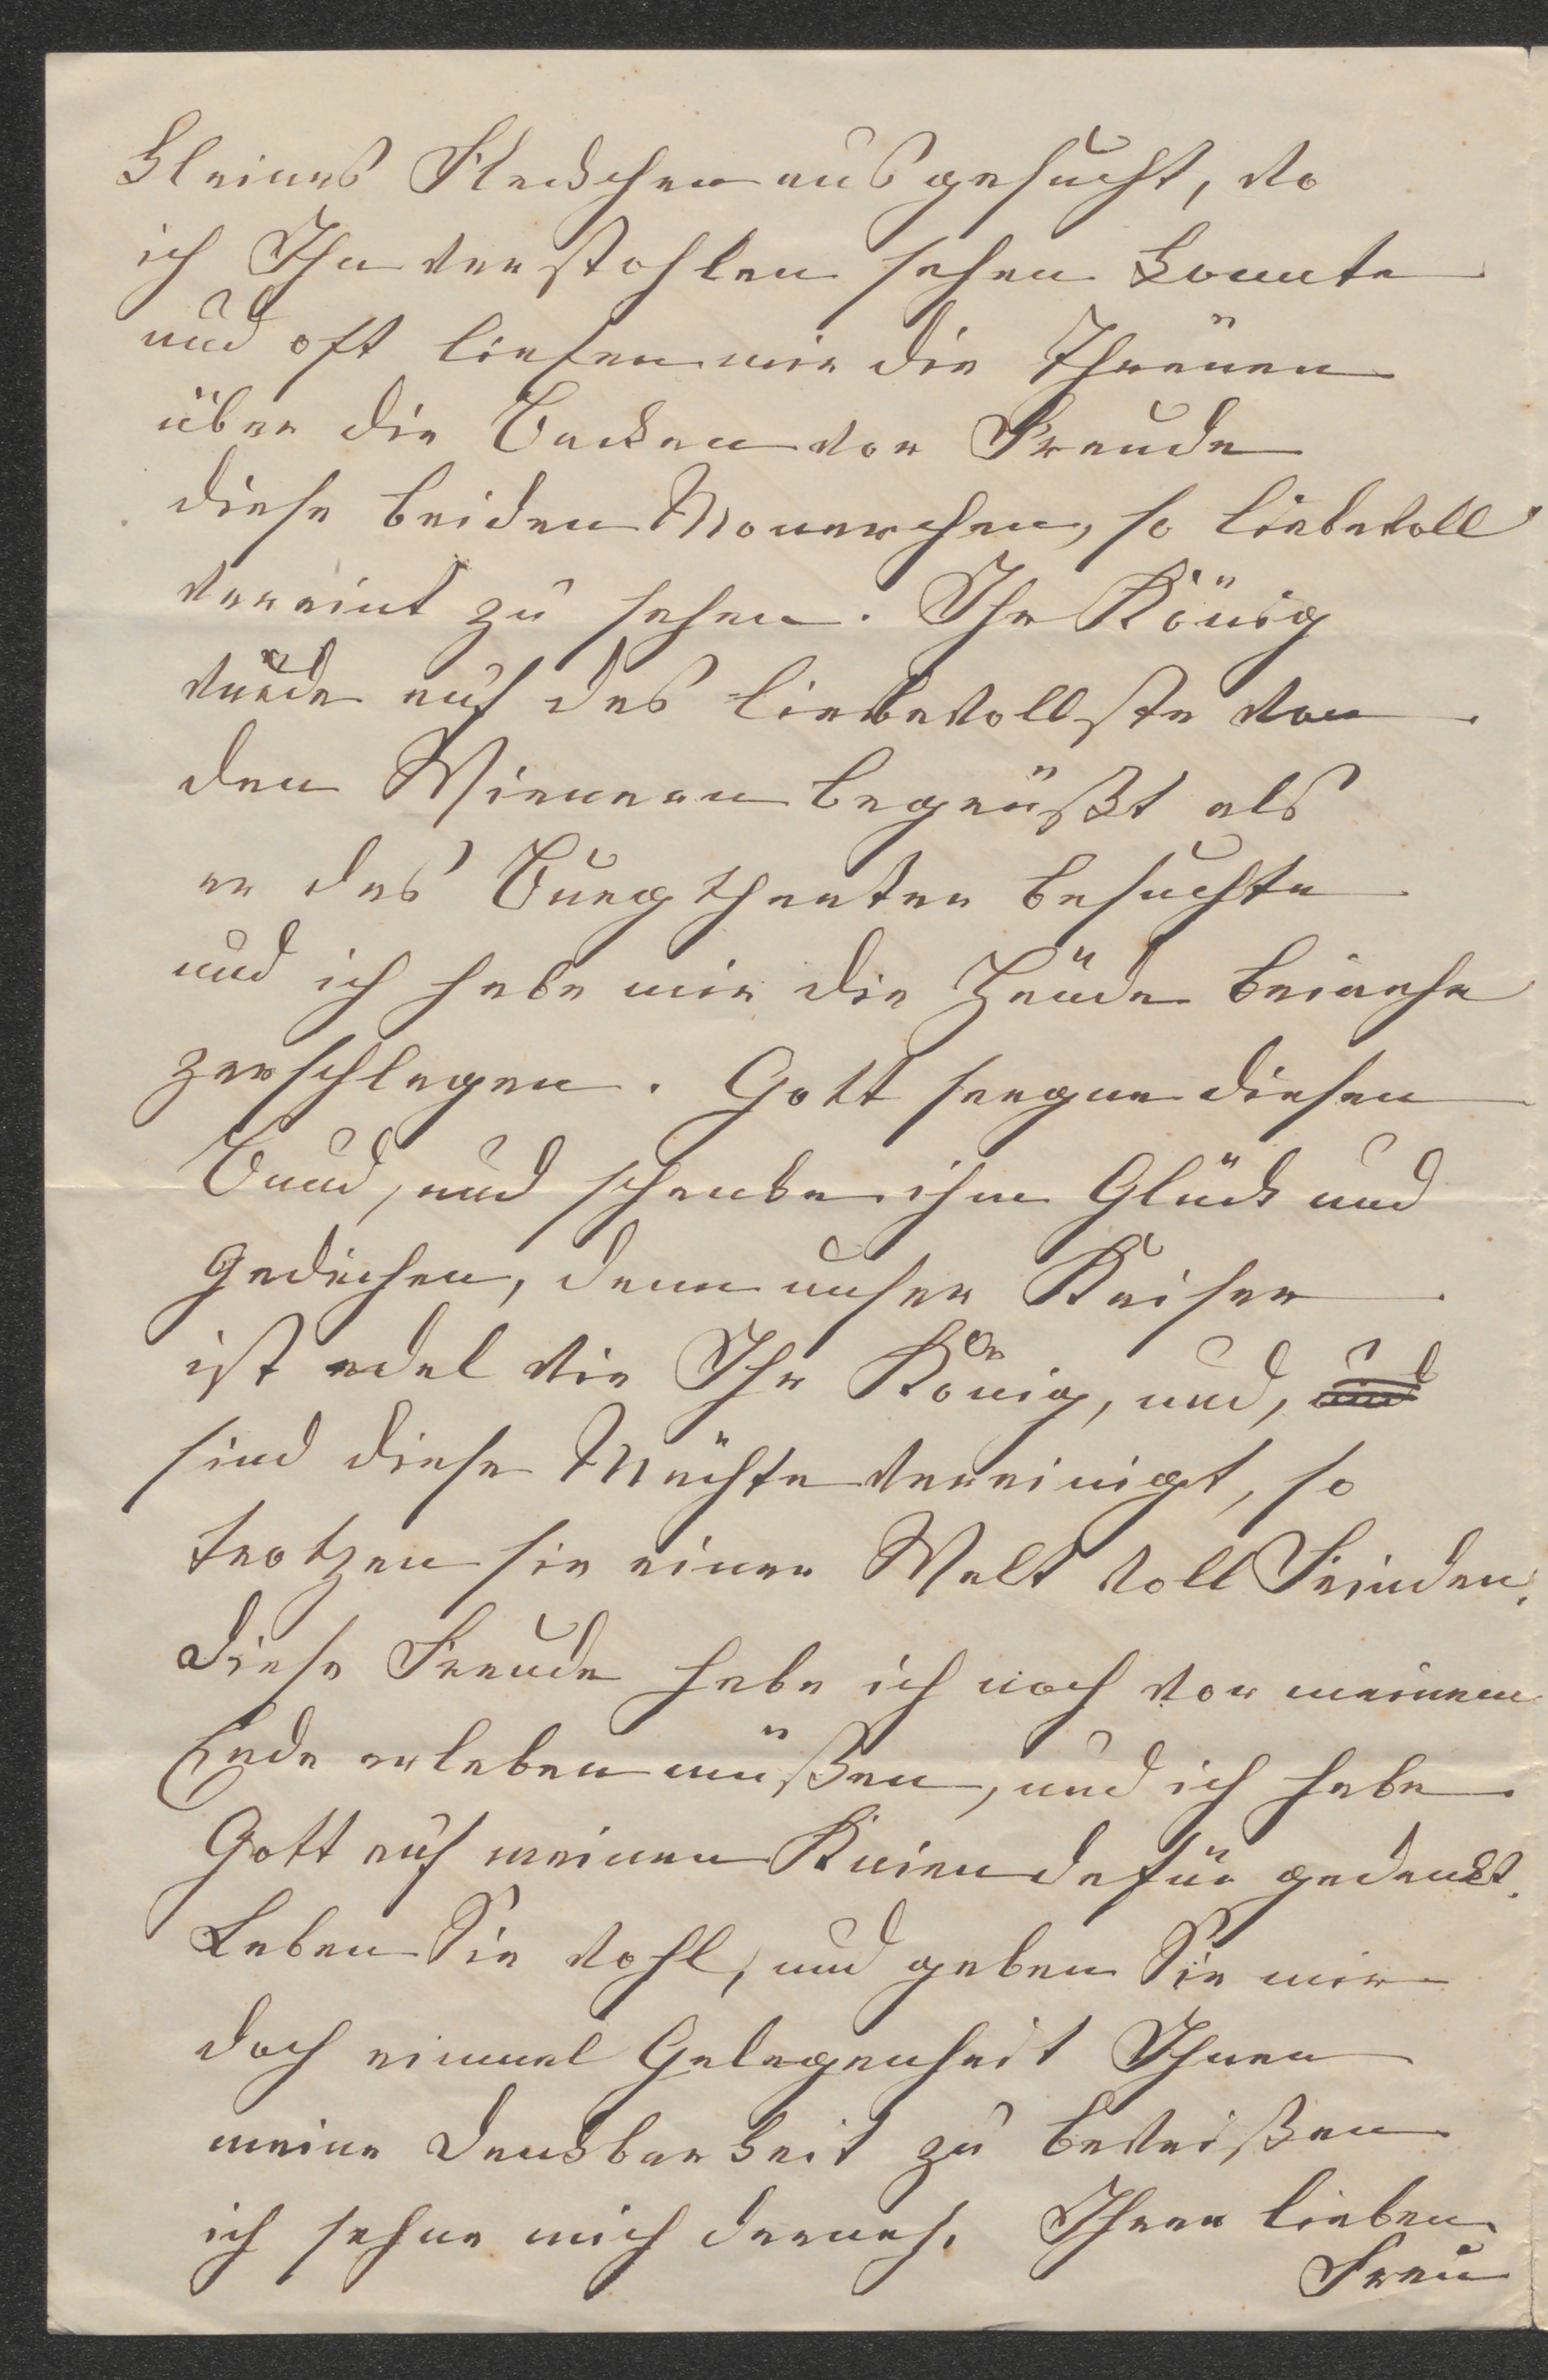 kleines Fleckchen ausgesucht, wo
ich Ihn verstohlen sehen konnte
und oft liefen mir die Thränen
über die Backen vor Freude
diese beiden Monarchen, so liebevoll
vereint zu sehen. Ihr König
wurde auf das liebevollste von
den Wienern begrüßt als
er das Burgtheater besuchte
und ich habe mir die Hände beinahe
zerschlagen. Gott seegne diesen
Bund, und schenke ihm Glück und
Gedeihen, denn unser Kaiser
ist edel wie Ihr König, und, und
sind diese Mächte vereinigt, so
trotzen sie einer Welt voll Feinden.
Diese Freude habe ich noch vor meinem
Ende erleben müßen, und ich habe
Gott auf meinen Knien dafür gedankt.
Leben Sie wohl, und geben Sie mir
doch einmal Gelegenheit Ihnen
meine Dankbarkeit zu beweißen
ich sehne mich darnach. Ihrer lieben
Frau